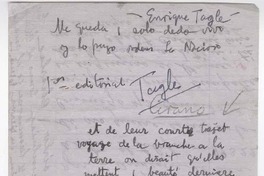 - Enrique Tagle -
Me queda 1 solo dedo vivo
y lo puso
editorial Tagle
et de leur court trajet
voyage de la branche a la
terre on dirait qu'elles
mettent 1 beauté dernière